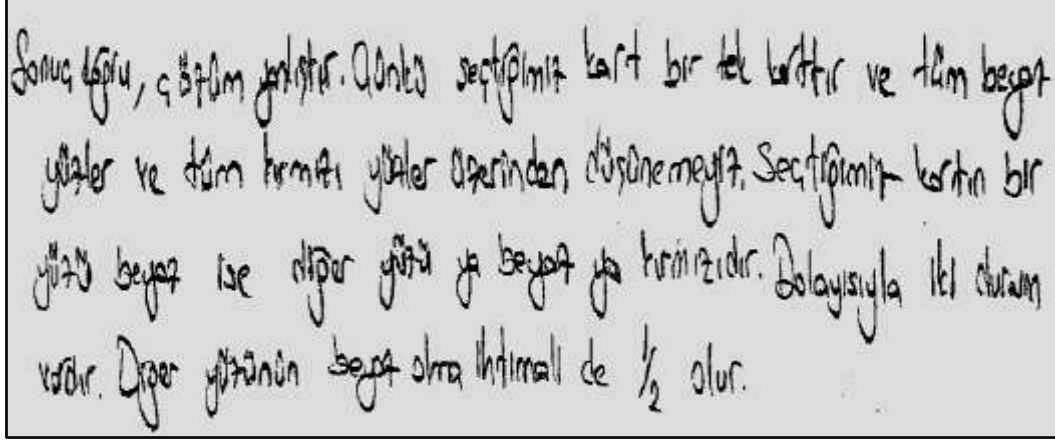 Sonuç doğru, çözüm yanlıştır. Çünkü seçtiğimiz kart bir tek karttır ve tüm beyaz
yüzler ve tüm kırmızı yüzler üzerinden düşünemeyiz. Seçtiğimiz kartın bir
yüzü beyaz ise diğer yüzü ya beyaz ya kırmızıdır. Dolayısıyla iki durum
vardır. Diğer yüzünün beyaz olma ihtimali de 1/2 olur.